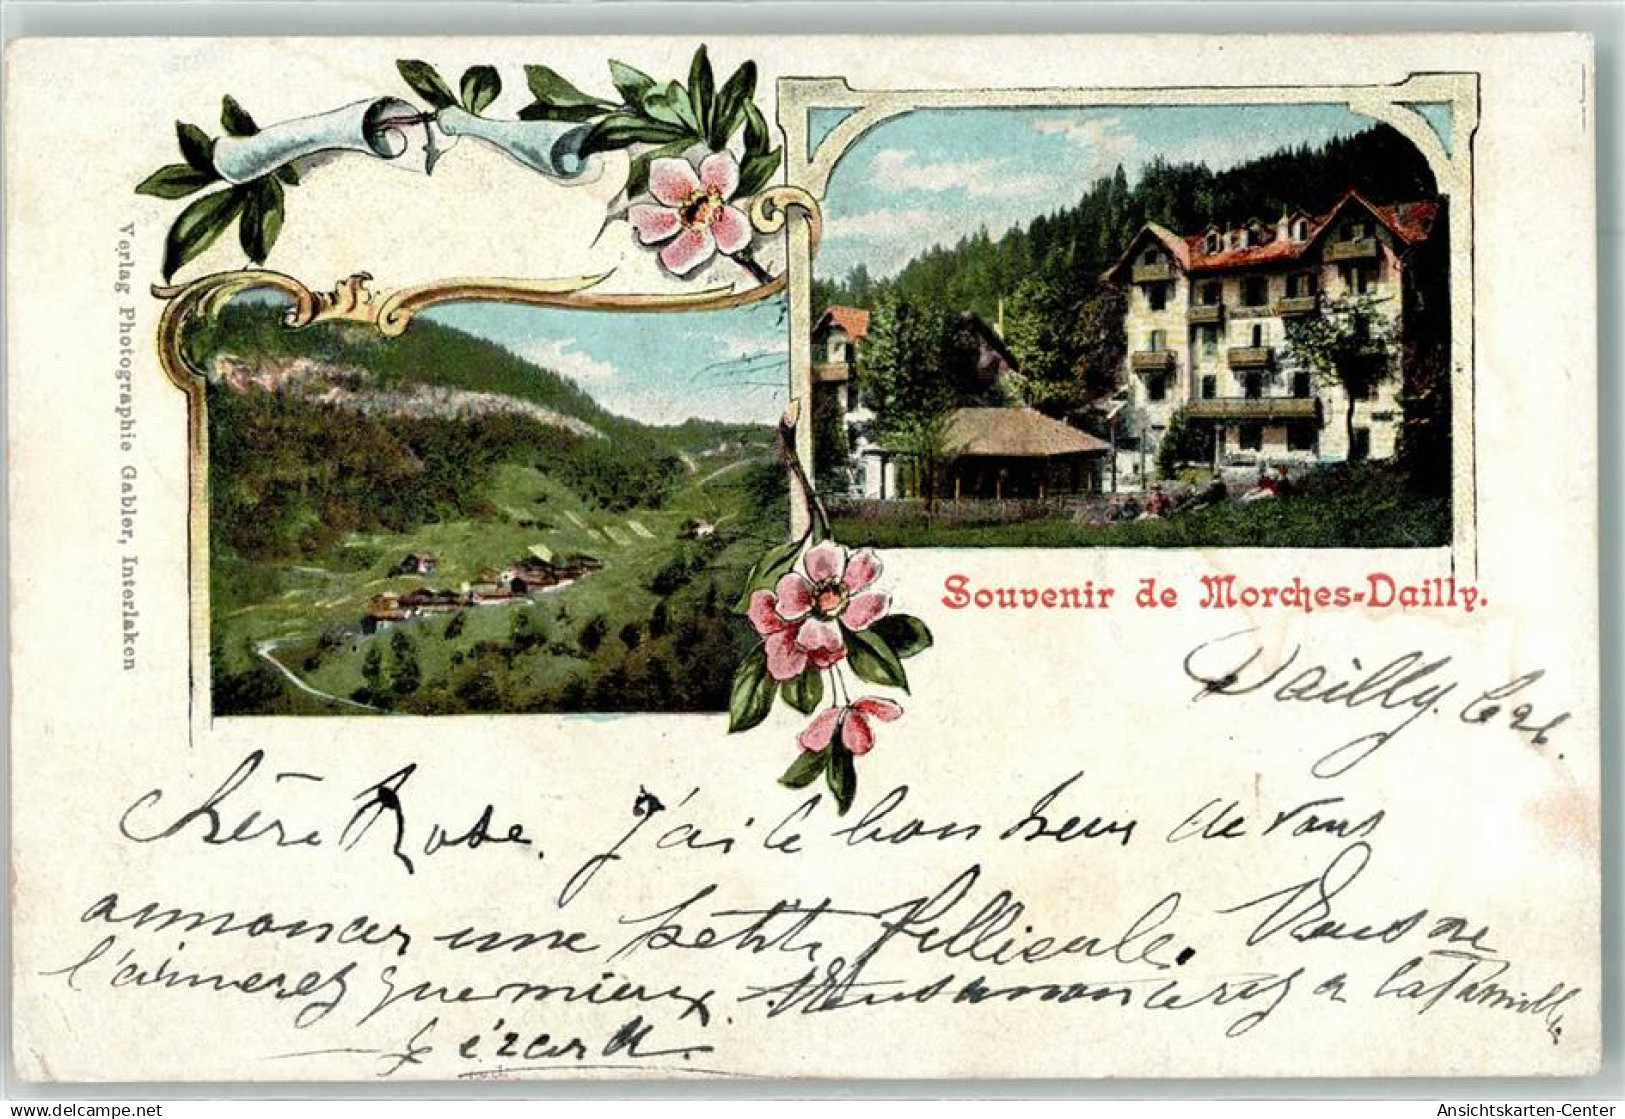 Verlag Photographie Gabler, Interlaken
Souvenir de Morches-Dailly.
Dailly.
Chère Rose. J'ai le bonheur de vous
annoncer une petite Pellicule. Vous ne
l'aimerez que mieux. Vous annoncerez a la famille
Gézard.
delcampe.net
Ansichtskarten-Center